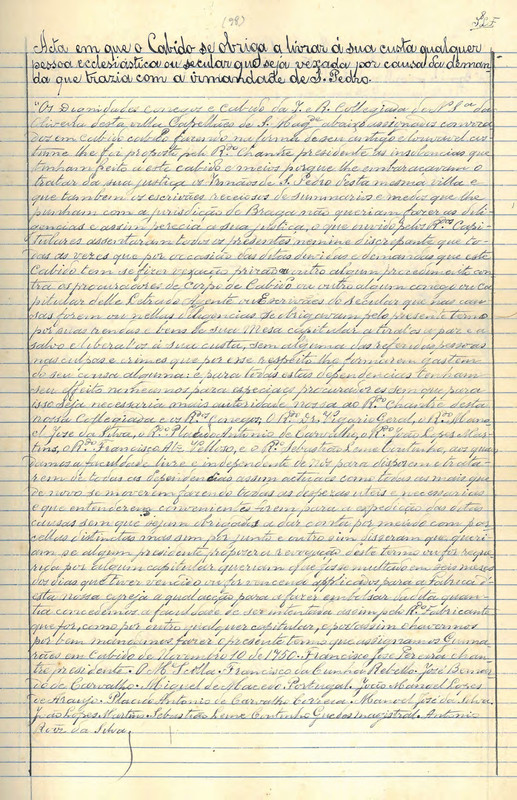 (98)
Acta em que o Cabido se obriga a livrar á sua custa qualquer
pessoa ecclesiástica ou secular que seja vexada por causa da deman-
da que trazia com a irmandade de S. Pedro.
"Os Dignidades conegos e Cabido da I. e R. Collegiada de N. Sra. da
Oliveira desta villa Capellhão de S. Magde. abaixo assinados convoca-
dos em Cabido fazendo na forma de seu antigo e louvavel cos-
tume lhe foi proposto pelo Rdo. Chantre presidente as insolencias que
tinham feito a este cabido e meios porque lhe embaraçavam o
tratar da sua justiça os Irmãos de S. Pedro desta mesma villa e
que tambem os escrivães receosos de summario e medo que lhe
punham com a jurisdição de Braga não queriam fazer as dili-
gencias e assim perecia a sua justiça, o que ouvido pelos Rdos. Capi-
tulares assentaram todos os presentes nemine discrepante que to-
das as vezes que por occasião das ditas duvidas e demandas que este
Cabido tem se ficar vexação prizão ou outro algum procedimento con-
tra os procuradores do corpo do Cabido ou outro algum conego ou ca-
pitular delle Letrado Agente ou Escrivães do secular que nas cau-
sas forem ou nellas diligencias se obrigavam pelo presente termo
por suas rendas e bens da sua Mesa capitular a tiral-os a paz e a
salvo e liberal-os á sua custa, sem alguma das referidas pessoas
nas culpas e crimes que por esse respeito lhe formarem gastem
de seu cousa alguma: e para todas estas dependencias tenham
seu effeito nomeamos para especiaes procuradores sem ou para
isso seja necessaria mais autoridade nossa ao Rdo. Chantre desta
nossa Collegiada e os Rdos. Conegos, o Rdo. Dr. Vigario Geral, o Rdo. Mano-
el José da Silva, o Rdo. Placido Antonio de Carvalho, o Rdo. João Lopes Mar-
tins, o Rdo. Francisco Alz. Velloso, e o Rdo. Sebastião Leme Coutinho, aos quaes
damos a faculdade livre e independente de nós para disporem e trata-
rem de todas as dependencias assim activadas como todas as mais que
de novo se moverem fazendo todas as despezas uteis e necessarias
e que entenderem convenientes forem para a expedição das ditas
causas sem que sejam obrigados a dar conta por meúdo com par-
cellas distinctas mas sim por junto e outro sim disseram que queri-
am se algum presidente propozera revogação deste termo ou for reque-
rido por algum capitular, queriam que fosse multado em seis mezes
dos dias que tiver vencido ou for vencendo applicados para a Fabrica d'
esta nossa egreja a qual acção para a fazer embolsar da dita quan-
tia concedemos a faculdade de ser intentada assim pelo Rdo. Fabricante
que for, como por outro qualquer capitular, e por assim o havermos
por bem mandamos fazer o presente termo que assignamos Guima-
rães em Cabido de Novembro 10 de 1750. Francisco José Pereira chan-
tre presidente. O M. Escolla. Francisco da Cunha Rebello. José Bernar-
do de Carvalho. Miguel de Macedo Portugal. João Manoel Lopes
de Araujo. Placido Antonio de Carvalho Correca. Manoel José da Silva.
João Lopes Martins. Sebastião Leme Coutinho Guedes magistral. Antonio
Roiz. da Silva.